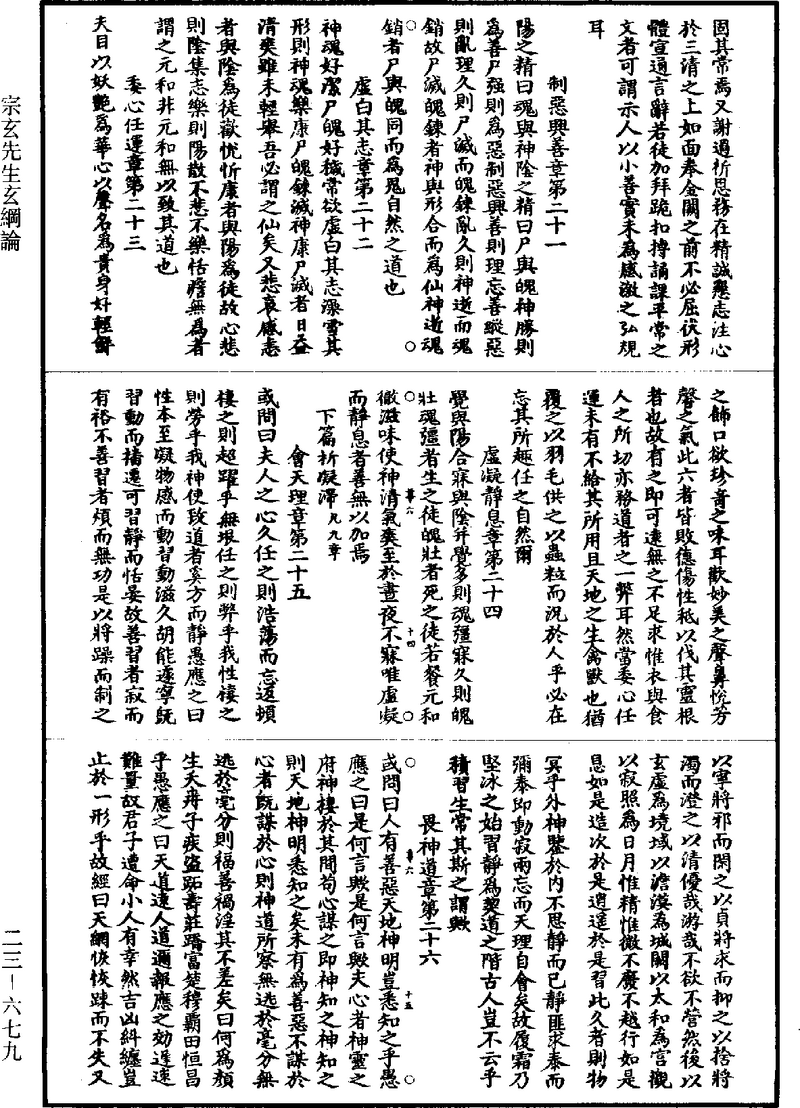 固其常焉又謝過祈恩務在精誠懇志注心
於三清之上如面奉金闕之前不必屈伏形
體宣通言辭若徒加拜跪扣搏誦課平常之
文者可謂示人以小善實未為感激之弘規
耳
制惡興善章第二十一
陽之精曰魂與神陰之精曰尸與魄神勝則
為善尸强則為惡制惡興善則理忘善縱惡
則亂理久則尸滅而魄鍊亂久則神逝而魂
銷故尸滅魄鍊者神與形合而為仙神逝魂
銷者尸與魄同而為鬼自然之道也
虛白其志章第二十二
神魂好潔尸魄好穢常欲虛白其志澡雪其
形則神魂樂康尸魄鍊滅神康尸滅者日益
清爽雖未輕舉吾必謂之仙矣又悲哀感恚
者與陰為徒歡悅忻康者與陽為徒故心悲
則陰集志樂則陽散不悲不樂恬澹無為者
謂之元和非元和無以致其道也
委心任運章第二十三
夫目以妖艷為華心以聲名為貴身好輕鮮
之飾口欲珍奇之味耳歡妙美之聲鼻悅芳
馨之氣此六者皆敗德傷性秖以伐其靈根
者也故有之即可遠無之不足求惟衣與食
人之所切亦務道者之一弊耳然當委心任
運未有不給其所用且天地之生禽獸也猶
覆之以羽毛供之以蟲粒而況於人乎必在
忘其所趣任之自然爾
虛凝靜息章第二十四
覺與陽合寐與陰并覺多則魂彊寐久則魄
壯魂彊者生之徒魄壯者死之徒若餐元和
徹滋味使神清氣爽至於晝夜不寐唯虛凝
而靜息者善無以加焉
下篇析凝滯凡九章
會天理章第二十五
或問曰夫人之心久任之則浩蕩而忘返頓
棲之則超躍乎無垠任之則弊乎我性棲之
則勞乎我神使致道者奚方而靜愚應之曰
性本至凝物感而動習動滋久胡能遽寧既
習動而播遷可習靜而恬晏故善習者寂而
有裕不善習者煩而無功是以將躁而制之
以寧將邪而閑之以貞將求而抑之以捨將
濁而澄之以清優哉游哉不欲不營然後以
玄虛為境域以澹漠為城闕以太和為宫觀
以寂照為日月惟精惟微不廢不越行如是
息如是造次於是逍遥於是習此久者則物
冥乎外神鑒於内不思靜而已靜匪求泰而
彌泰即動寂兩忘而天理自會矣故履霜乃
堅冰之始習靜為契道之階古人豈不云乎
積習生常其斯之謂歟
畏神道章第二十六
或問曰人有善惡天地神明豈悉知之乎愚
應之曰是何言歟是何言歟夫心者神靈之
府神棲於其間苟心謀之即神知之神知之
則天地神明悉知之矣未有為善惡不謀於
心者既謀於心則神道所察無逃於毫分無
逃於毫分則福善禍淫其不差矣曰何為顏
生夭冉子疾盗跖壽莊蹻富楚穆霸田恒昌
乎愚應之曰天道遠人道邇報應之効遲速
難量故君子遭命小人有幸然吉凶糾纏豈
止於一形乎故經曰天網恢恢踈而不失又
華六
十四
華六
十五
宗玄先生玄綱論
二三－六七九